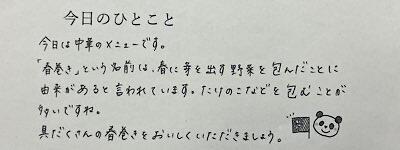 今日のひとこと
今日は中華のメニューです。
「春巻き」という名前は、春に芽を出す野菜を包んだことに
由来があると言われています。たけのこなどを包むことが
多いですね。
具だくさんの春巻きをおいしくいただきましょう。